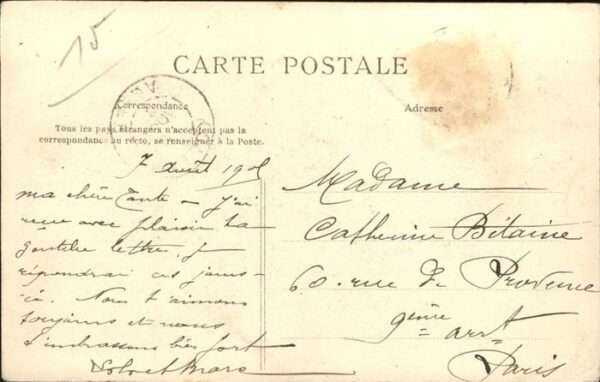 15
CARTE POSTALE
Correspondance
Adresse
Tous les pays étrangers n'acceptent pas la
correspondance au recto, se renseigner à la Poste.
7 août 190
ma chère Tante – J'ai
reçu avec plaisir ta
gentille lettre, j'y
répondrai ces jours-
ci. Nous t'aimons
toujours et nous
t'embrassons bien fort
Madame
Catherine Bitaine
60. rue de Provence
9ème arrt
Paris